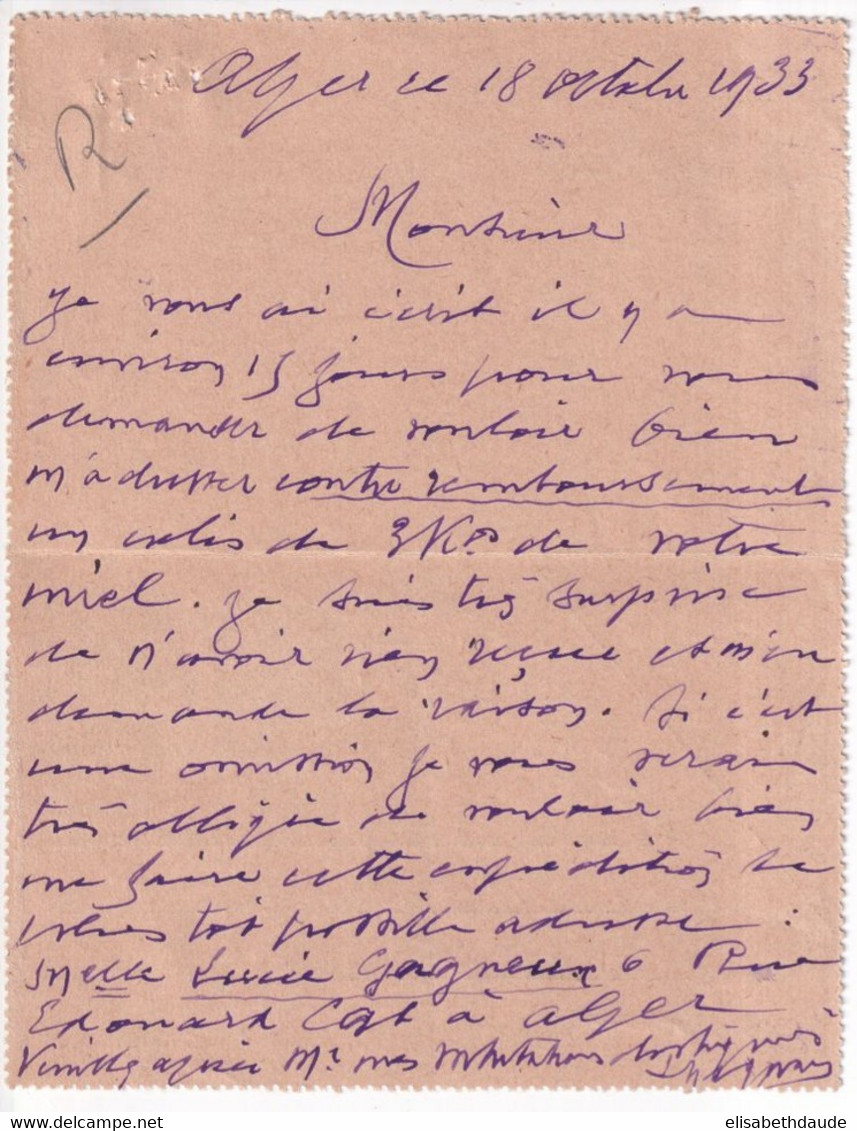 Alger le 18 octobre 1933
R
Monsieur
je vous ai écrit il y a
environ 15 jours pour vous
demander de vouloir bien
m'adresser contre remboursement
un colis de 3 Kos de votre
miel. je suis très surprise
de n'avoir rien reçue et m'en
demande la raison. Si c'est
une omission je vous serais
très obligée de vouloir bien
me faire cette expédition le
plus tôt possible adresse :
Melle Lucie Gagneux 6 Rue
Edouard Cat à Alger
Veuillez agréer Mr mes salutations distinguées
elisabethdaude